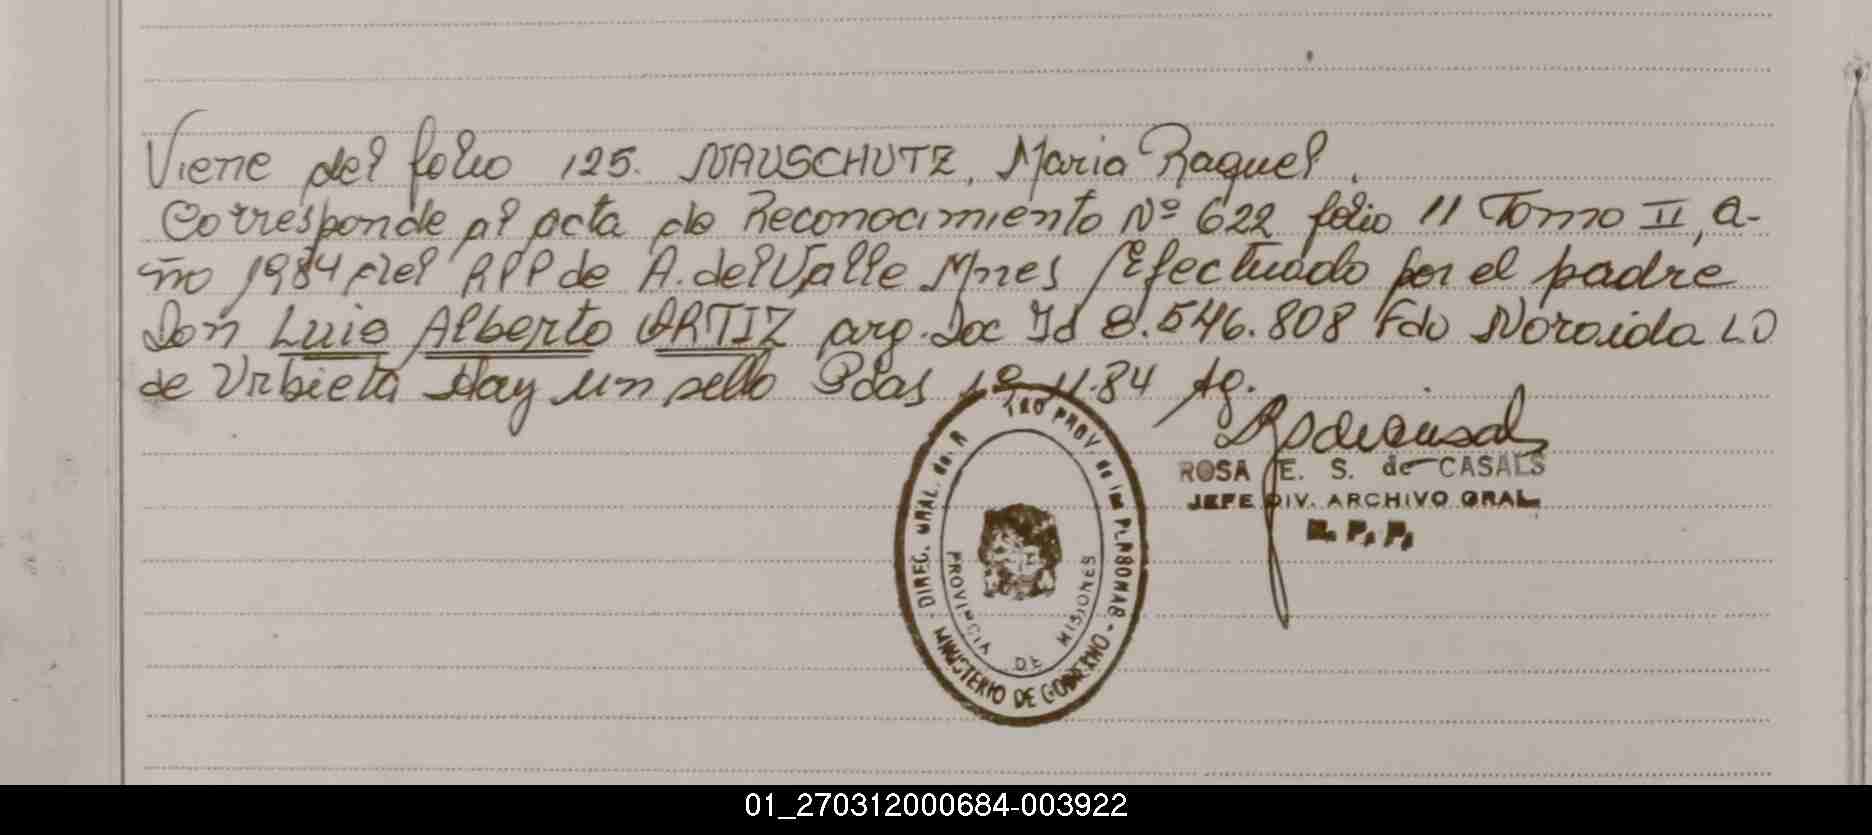 Viene del folio 125. NAUSCHUTZ, Maria Raquel.
Corresponde al acta de Reconocimiento Nº 622 folio 11 Tomo II, a-
ño 1984 del RPP de A. del Valle Mnes Efectuado por el padre
Don Luis Alberto ORTIZ arg. Doc Id 8.546.808 Fdo
de Urbieta Hay un sello Pdas 1º.11.84 Ag.
ROSA E. S. de CASALS
JEFE DIV. ARCHIVO GRAL.
R. P. P.
DIREC. GRAL. del R TRO PROV. de las PERSONAS
MINISTERIO DE GOBIERNO
PROVINCIA DE MISIONES
01_270312000684-003922